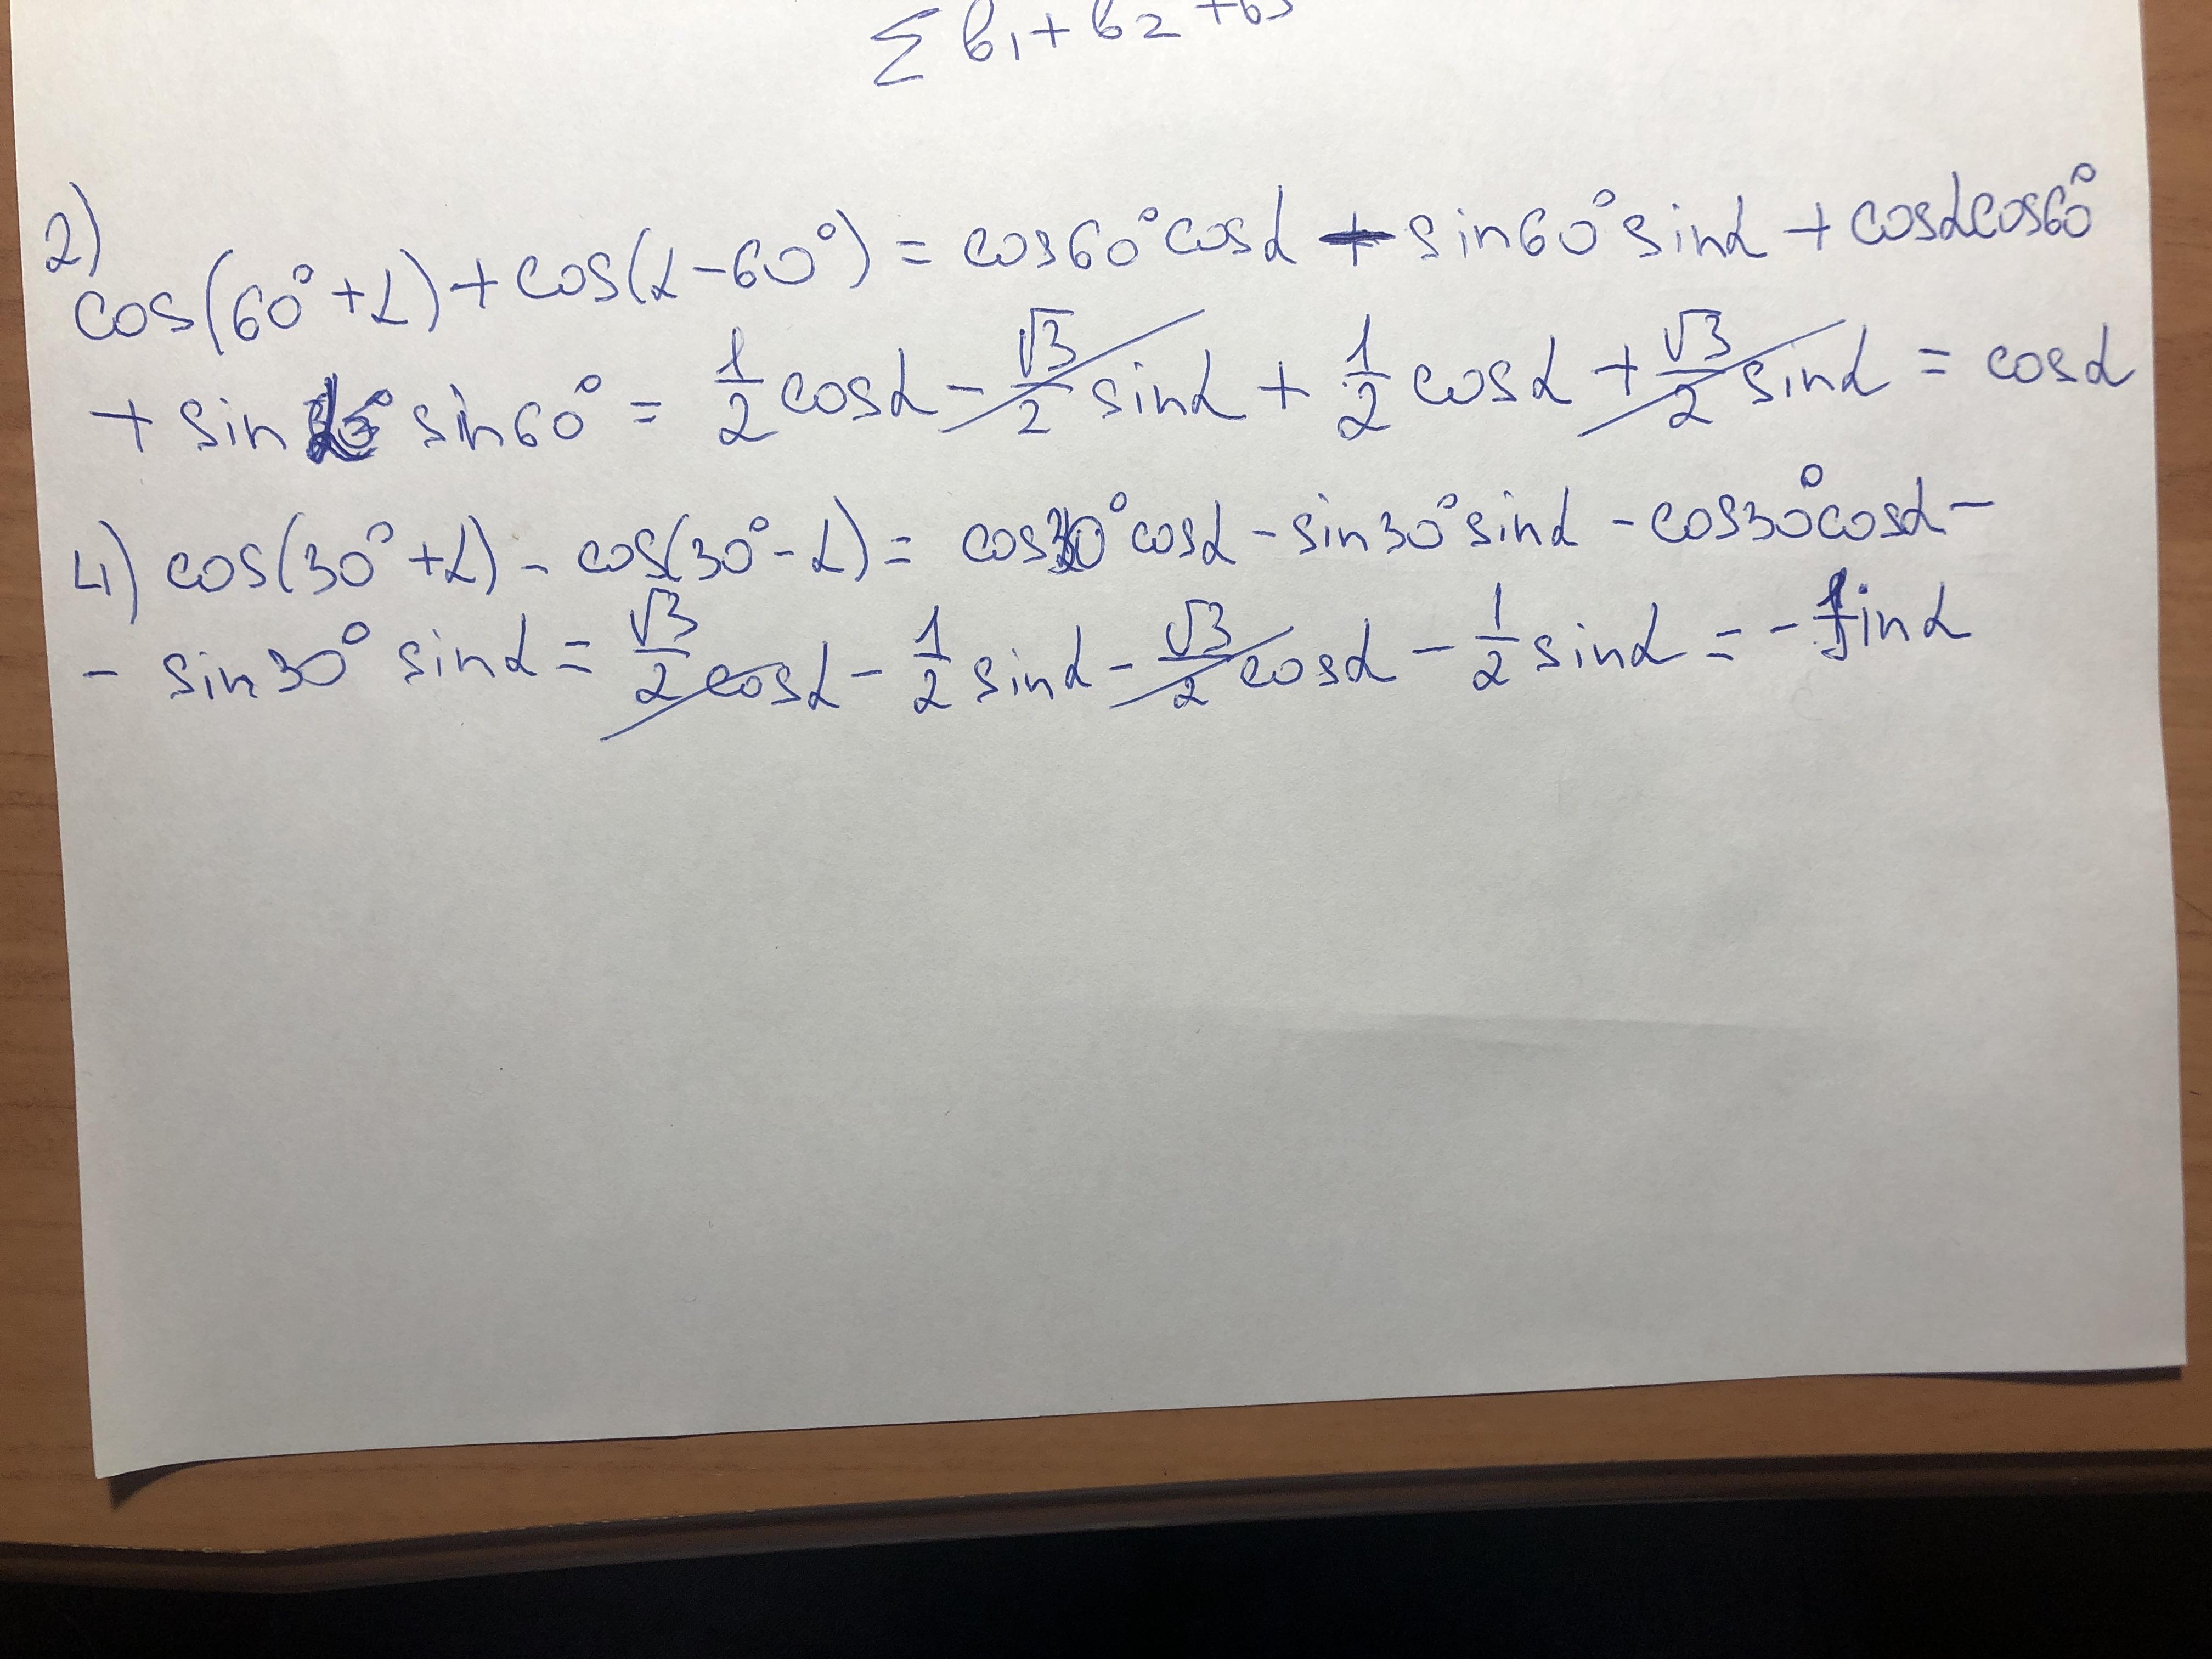 ∑ b₁ + b₂ + b₃
2)
cos(60° + α) + cos(α − 60°) = cos60°cosα − sin60°sinα + cosαcos60°
+ sinα sin60° = 1/2 cosα − √3/2 sinα + 1/2 cosα + √3/2 sinα = cosα
4) cos(30° + α) − cos(30° − α) = cos30°cosα − sin30°sinα − cos30°cosα −
− sin30° sinα = √3/2 cosα − 1/2 sinα − √3/2 cosα − 1/2 sinα = − sinα